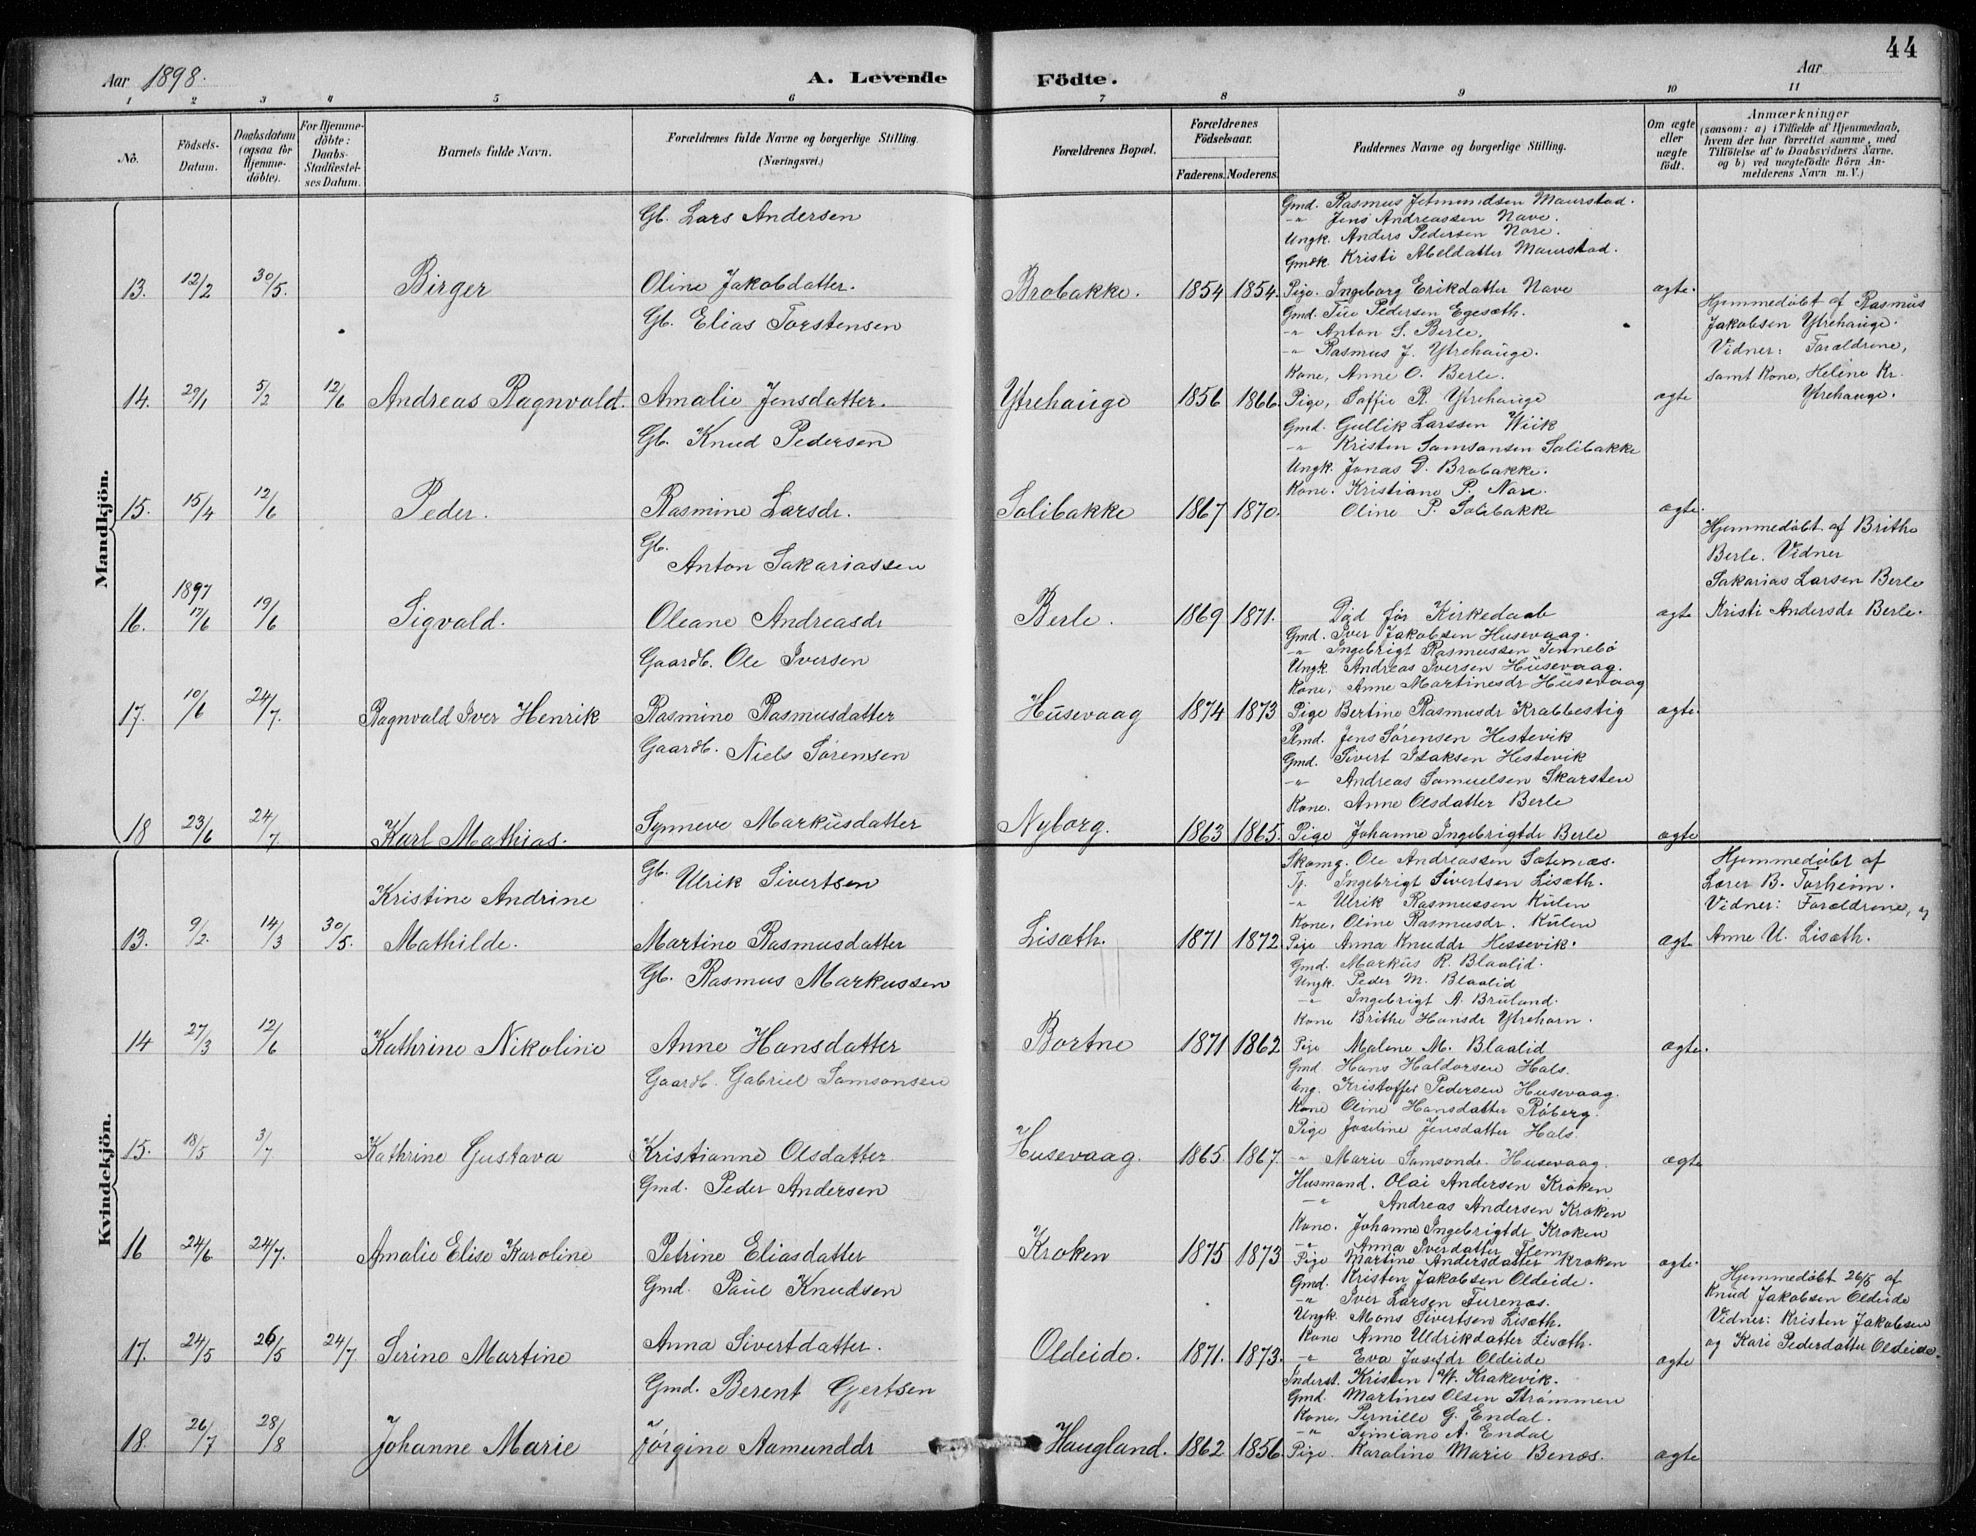 44
Aar 1898.
A. Levende
Födte.
Aar
1 2 3 4 5 6 7 8 9 10 11
No.
Födsels-Datum.
Daabsdatum (ogsaa for Hjemme-döbte).
For Hjemme-döbte: Daabs-Stadfæstel-ses Datum.
Barnets fulde Navn.
Forældrenes fulde Navne og borgerlige Stilling. (Næringsvei.)
Forældrenes Bopæl.
Forældrenes Födselsaar.
Faderens. Moderens.
Faddernes Navne og borgerlige Stilling.
Om ægte eller uægte födt.
Anmærkninger
(saasom: a) i Tilfælde af Hjemmedaab, hvem der har forrettet samme, med Tilföielse af to Daabsvidners Navne. og b) ved uægtefödte Börn An-melderens Navn m. V.)
Mandkjön.
Gb. Lars Andersen
Gmd. Rasmus Jetmundsen Maurstad.
-"- Jens Andreassen Nave.
Ungk. Anders Pedersen Nore.
Gmdk. Kristi Abeldatter Maurstad.
13. 12/2 30/5. Birger Oline Jakobdatter. Brobakke. 1854 1854. Pige. Ingeborg Erikdatter Nave ægte.
Gb. Elias Torstensen
Gmd. Tue Pedersen Egesæth.
-"- Anton S. Berle.
-"- Rasmus J. Ytrehauge.
Kone, Anne O. Berle.
Hjemmedøbt af Rasmus
Jakobsen Ytrehauge.
Vidner: Forældrene,
samt Kone, Helene Kr.
Ytrehauge.
14. 29/1 5/2 12/6 Andreas Ragnvald. Amalie Jensdatter. Ytrehauge 1856 1866. Pige, Soffie R. Ytrehauge ægte
Gb. Knud Pedersen
Gmd. Gullik Larssen Wiik
-"- Kristen Samsonsen Solibakke
Ungk. Jonas D. Brobakke.
Kone. Kristiane P. Nore.
15. 15/4 12/6 Peder. Rasmine Larsdr. Solibakke 1867 1870. Oline P. Solibakke ægte.
Gb. Anton Sakariassen
Hjemmedøbt af Brithe
Berle. Vidner
Sakarias Larsen Berle
Kristi Andersdr Berle.
16. 1897 17/6 19/6 Sigvald. Oleane Andreasdr Berle. 1869 1871. Død før Kirkedaab ægte
Gaardb. Ole Iversen
Gmd. Iver Jakobsen Husevaag.
-"- Ingebrigt Rasmussen Tennebö
Ungk. Andreas Iversen Husevaag.
Kone, Anne Martinesdr Husevaag
17. 10/6 24/7. Ragnvald Iver Henrik Rasmine Rasmusdatter Husevaag 1874 1873 Pige Bertine Rasmusdr Krabbestig ægte.
Gaardb. Niels Sørensen
Gmd. Jens Sørensen Hestevik
Gmd. Sivert Isaksen Hestevik
-"- Andreas Samuelsen Skarsten
Kone. Anne Olsdatter Berle
18 23/6 24/7 Karl Mathias. Synneve Markusdatter Nyborg. 1863 1865. Pige Johanne Ingebrigtdr Berle ægte
Kvindekjön.
Gb. Ulrik Sivertsen
Skomg. Ole Andreassen Sæternæs.
Tj. Ingebrigt Sivertsen Lisæth.
-"- Ulrik Rasmussen Kulen
Kone, Oline Rasmusdr. Kulen
Hjemmedøbt af
Lærer B. Forheim.
Vidner: Forældrene, og
Anne U. Lisæth.
13. 9/2. 14/3 30/5. Kristine Andrine Mathilde. Martine Rasmusdatter Lisæth. 1871 1872 Pige Anna Knuddr Hessevik. ægte
Gb. Rasmus Markussen
Gmd. Markus R. Blaalid.
Ungk. Peder M. Blaalid
-"- Ingebrigt A. Bruland.
Kone Brithe Hansdr Ytrehorn.
14 27/3 12/6 Kathrine Nikoline Anne Hansdatter Bortne 1871 1862 Pige Malene M. Blaalid ægte.
Gaardb. Gabriel Samsonsen
Gmd Hans Haldorsen Hals.
Ung. Kristoffer Pedersen Husevaag.
Kone Oline Hansdatter Røberg.
Pige Joseline Jensdatter Hals.
15. 18/5 3/7 Kathrine Gustava Kristianne Olsdatter Husevaag. 1865 1867. -"- Marie Samsondr. Husevaag. ægte
Gmd. Peder Andersen
Husmand. Olai Andersen Kroken
-"- Andreas Andersen Kroken
Kone. Johanne Ingebrigtdr Kroken
-"- Anna Iverdatter Flem
16 24/6 24/7. Amalie Elise Karoline Petrine Eliasdatter Kroken 1875 1873 Pige Martine Andersdatter Kroken ægte.
Gmd. Paul Knudsen
Gmd. Kristen Jakobsen Oldeide.
-"- Iver Larsen Furenæs.
Ungk. Mons Sivertsen Lisæth.
Kone Anne Uldrikdatter Lisæth.
Hjemmedøbt 26/5 af
Knud Jakobsen Oldeide
Vidner: Kristen Jakobsen
og Kari Pedersdatter Oldeide.
17. 24/5 26/5 24/7. Serine Martine Anna Sivertdatter. Oldeide. 1871. 1873. -"- Eva Josefdr Oldeide ægte
Gmd. Berent Gertsen
Inderst. Kristen W. Krakevik.
Gmd. Martines Olsen Strömmen
Kone, Pernille G. Endal.
-"- Simiane A. Endal
18. 26/7 28/8 Johanne Marie Jørgine Aamunddr Haugland. 1862 1856. Pige. Karoline Marie Benæs. ægte